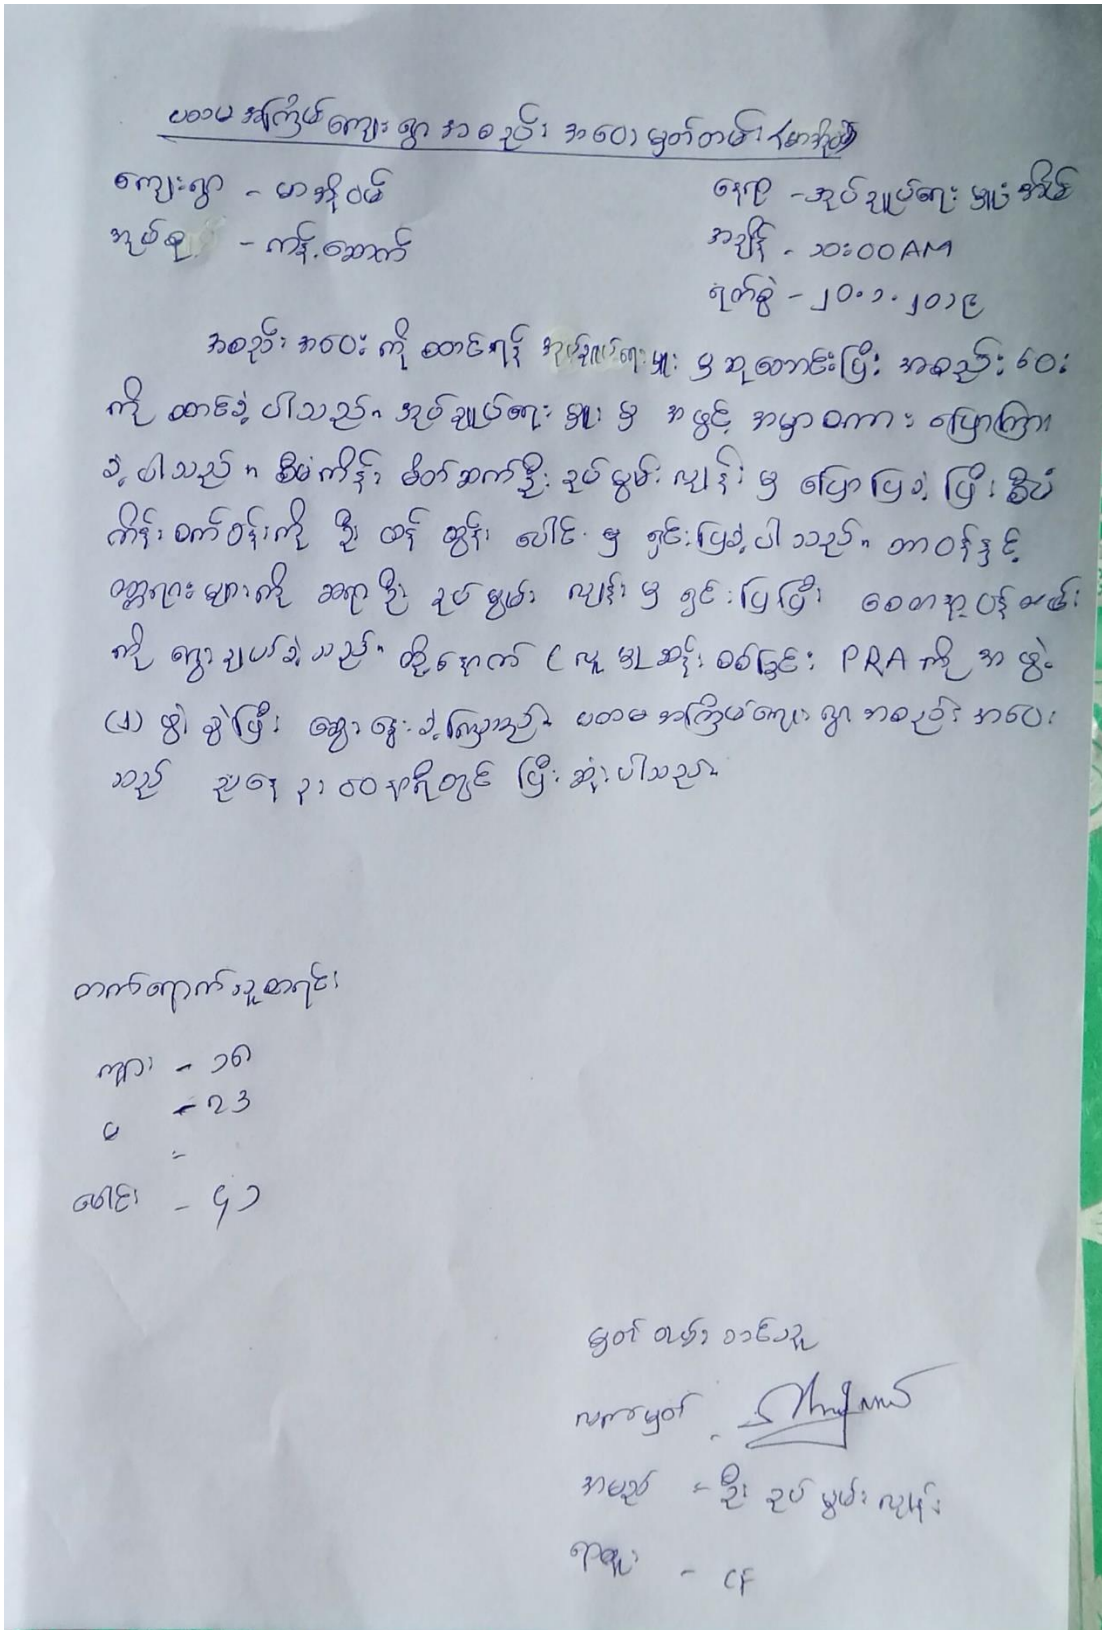 ပထမ အကြိမ် ကျေးရွာ အစည်း အဝေး မှတ်တမ်း
ကျေးရွာ - မာအိုဝမ်
နေရာ - အုပ်ချုပ်ရေး မှူးအိမ်
အုပ်စု - ကန့်ဆောက်
အချိန် - ၁၀:၀၀ AM
ရက်စွဲ - ၂၀.၁.၂၀၁၉
အစည်း အဝေး ကို စတင်ရန် အုပ်ချုပ်ရေးမှူး မှ ဆုတောင်းပြီး အစည်းဝေး
ကို စတင်ခဲ့ ပါသည်။ အုပ်ချုပ်ရေး မှူး မှ အဖွင့် အမှာစကား ပြောကြား
ခဲ့ ပါသည်။ စီမံကိန်း မိတ်ဆက် ဦး ခုပ်မွမ်း လျန်း မှ ပြောပြခဲ့ ပြီး စီမံ
ကိန်း စက်ဝန်းကို ဦး ထန် ထွန်း ပေါင် မှ ရှင်းပြခဲ့ ပါသည်။ တာဝန်နှင့်
ဝတ္တရား များကို ဆရာဦး ခုပ်မွမ်း လျန်း မှ ရှင်းပြပြီး စေတနာ့ဝန်ထမ်း
ကို ရွေးချယ်ခဲ့သည်။ ထို့နောက် လူမှုဆန်းစစ်ခြင်း PRA ကို အဖွဲ့
(၂) ဖွဲ့ ခွဲပြီး ဆွေးနွေးခဲ့ကြသည်။ ပထမ အကြိမ် ကျေးရွာ အစည်း အဝေး
သည် ညနေ ၃:၀၀ နာရီတွင် ပြီးဆုံးပါသည်။
တက်ရောက်သူစာရင်း
ကျား - ၁၈
မ - ၂၃
ပေါင်း - ၄၁
မှတ် တမ်း တင်သူ
လက်မှတ် -
အမည် - ဦး ခုပ် မွမ်း လျန်း
ရာထူး - CF